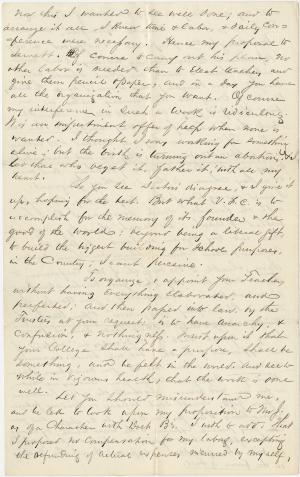 Now this I wanted to see well done; and to
arrange it all I knew time & labor, & daily con-
ference were necessary. Hence my proposal to
Servants. Of course to carry out his plan, no
other labor is needed than to elect teachers, and
give them pencil & paper, and in a day you have
all the organization that you want. Of course
my interference in such a work is ridiculous.
It is an impertinent offer of help when none is
wanted. I thought I was working for something
alive, but the birth is turning out an abortion, &
let those who begat it, father it, with all my
heart.
So you see Doctors disagree, & I give it
up, hoping for the best. But what V. F. C. is to
accomplish for the memory of its founder & the
good of the world: beyond being a liberal gift
to build the biggest building for school purposes
in the Country, I cant perceive.
To organize, & appoint your Teachers
without having everything elaborated, and
perfected: and then passed into law by the
Trustees at your request, is to have anarchy, &
confusion, & nothingness. Insist upon it that
your College shall have a purpose, shall be
something, and be felt in the world. And see to it
while in vigorous health, that the work is done
well.
Lest you should misunderstand me,
and be led to look upon my proposition to
as of a character with I wish to add that
I proposed no compensation for my labor, excepting
the refunding of actual expenses incurred by myself,